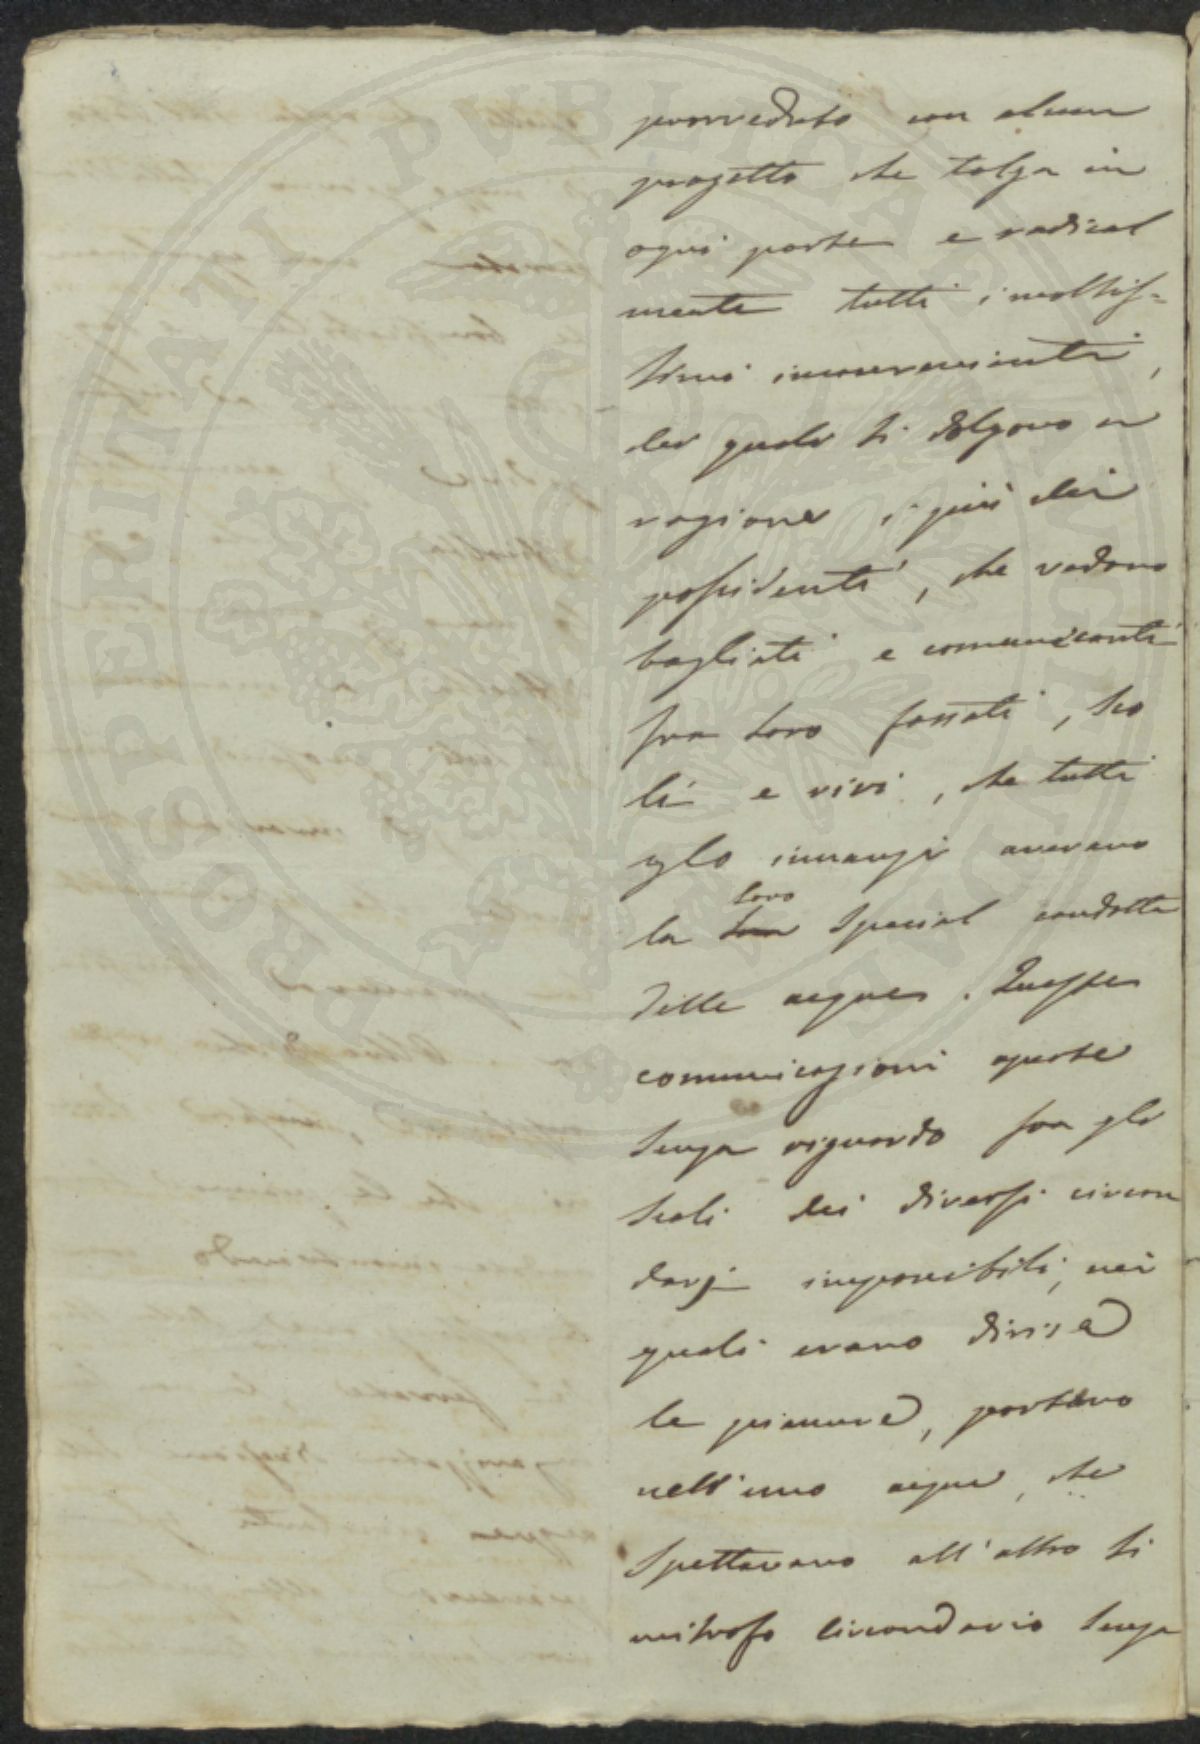 provveduto con alcun
progetto che tolga in
ogni parte e radical
mente tutti i moltis=
simi inconvenienti,
dei quali si dolgono a
ragione i più dei
possidenti, che vedono
tagliati e comunicanti
fra loro fossati, sco
li e vivi, che tutti
innanzi avevano
la loro special condotta
delle acque. Queste
comunicazioni aperte
senza riguardo fra gli
scoli dei diversi circon
darj imponibili, nei
quali erano divise
le pianure, portano
nell'uno acque, che
spettavano all'altro li
mitrofo circondario senza
PROSPERITATI PVBLICAE AVGENDAE